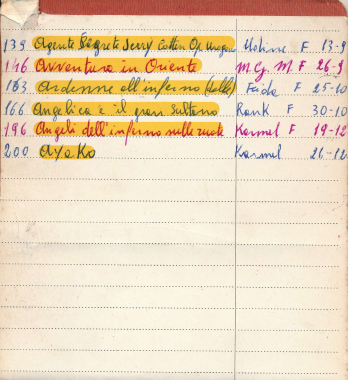 139 Agente Segreto Jerry Cotton Op. Uragano F 13-9
146 Avventura in Oriente M.G.M. F 26-9
163 Ardenne all'inferno F 25-10
166 Angelica e il gran sultano Rank F 30-10
196 Angeli dell'inferno sulle ruote F 19-12
200 Ayako 26-12